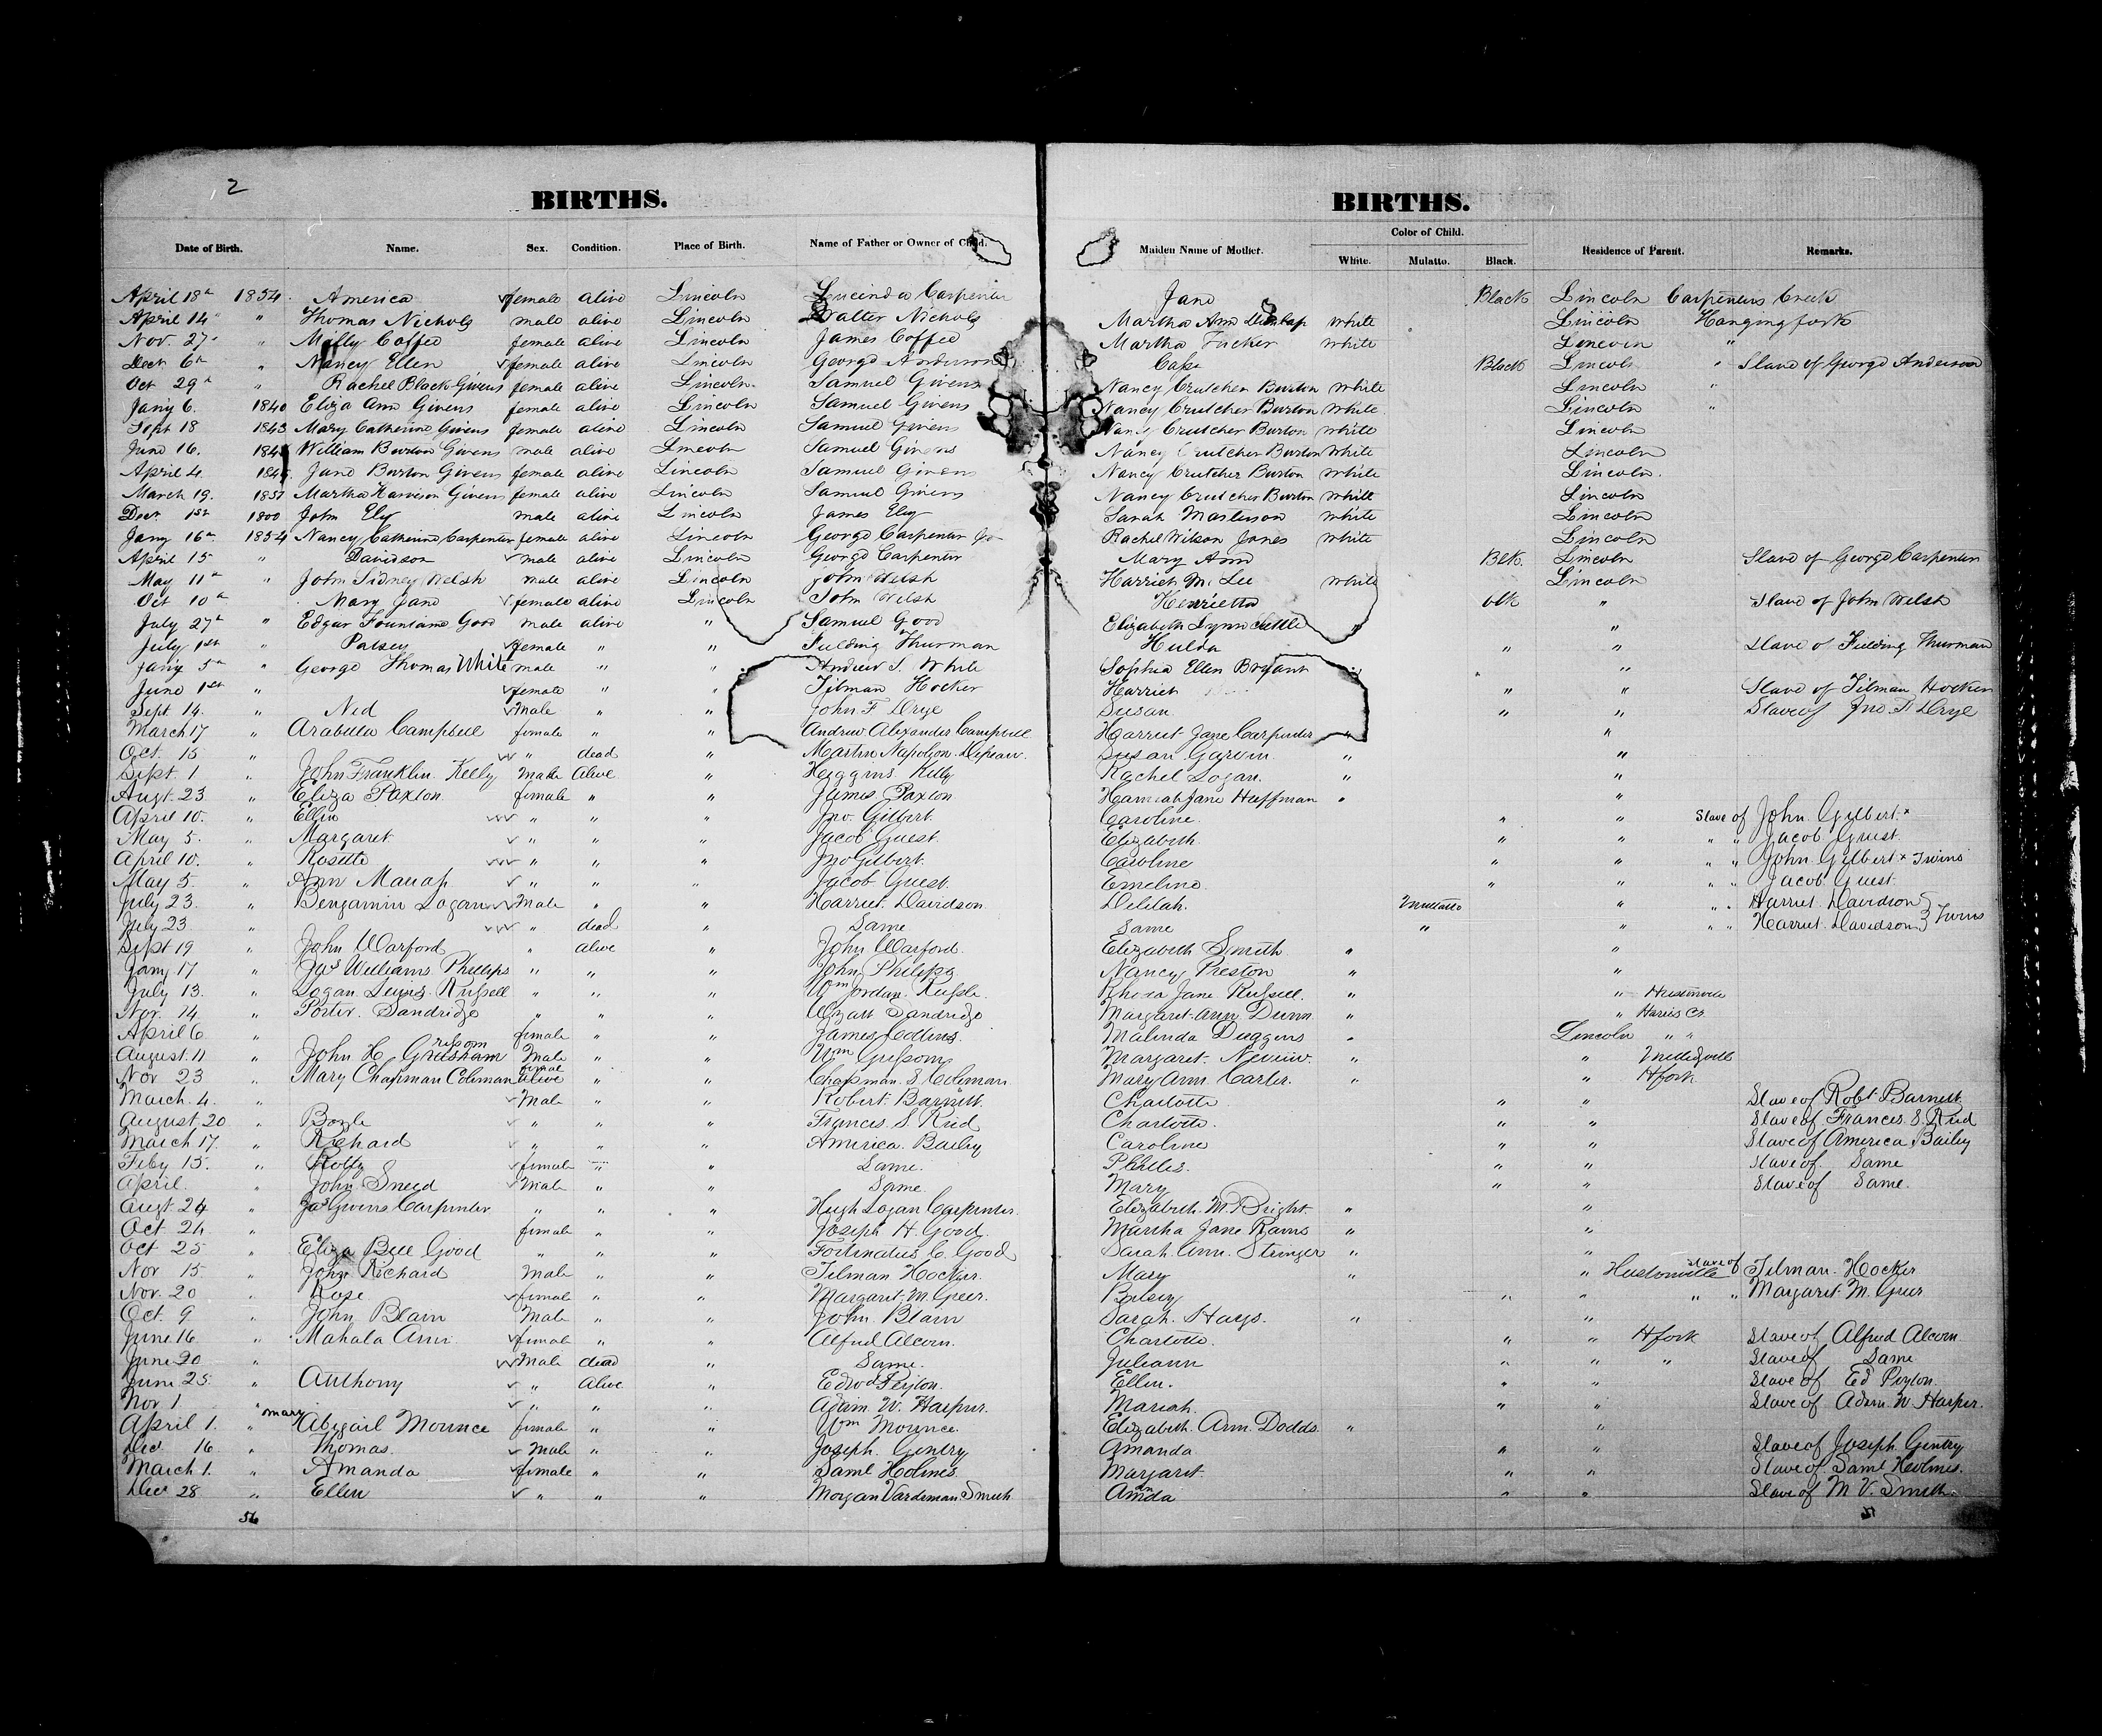 2
BIRTHS. BIRTHS.
Date of Birth. Name. Sex. Condition. Place of Birth. Name of Father or Owner of Child. Maiden Name of Mother. Color of Child. White. Mulatto. Black. Residence of Parent. Remarks.
April 18th 1854. America female alive Lincoln Lucinda Carpenter Jane Black Lincoln Carpenters Creek
April 14 " " Thomas Nichols male alive Lincoln Walter Nichols Martha Ann Dunlap white Lincoln Hangingfork
Nov. 27 " " Milly Coffee female alive Lincoln James Coffee Martha Tucker white Lincoln "
Decr 6th " Nancy Ellen female alive Lincoln George Anderson Black Lincoln " Slave of George Anderson
Oct 29th " Rachel Black Givens female alive Lincoln Samuel Givens Nancy Crutcher Burton White Lincoln "
Jany 6. 1840 Eliza Ann Givens female alive Lincoln Samuel Givens Nancy Crutcher Burton White Lincoln "
Sept 18 1843 Mary Catherine Givens female alive Lincoln Samuel Givens Nancy Crutcher Burton white Lincoln
June 16. William Burton Givens male alive Lincoln Samuel Givens Nancy Crutcher Burton White Lincoln
April 4. Jane Burton Givens female alive Lincoln Samuel Givens Nancy Crutcher Burton White Lincoln.
March 19. 1851 Martha Harrison Givens female alive Lincoln Samuel Givens Nancy Crutcher Burton white Lincoln
Decr 1st 1800 John Ely male alive Lincoln James Ely Sarah Masterson White Lincoln
Jany 16th 1854 Nancy Catherine Carpenter female alive Lincoln George Carpenter Jr Rachel Wilson Jones white Lincoln
April 15 " Davidson male alive Lincoln George Carpenter Mary Ann Blk. Lincoln Slave of George Carpenter
May 11th " John Sidney Welsh male alive Lincoln John Welsh Harriet M. Lee white Lincoln
Oct 10th Mary Jane female alive Lincoln John Welsh Henrietta blk " Slave of John Welsh
July 27th " Edgar Fountaine Good male alive " Samuel Good Elizabeth Lynn Settle "
July 1st " Patsey female " " Fielding Thurman Hulda " " Slave of Fielding Thurman
Jany 5th " George Thomas White male " " Andrew S. White Sophia Ellen Bryant " "
June 1st " female " " Tilman Hocker Harriet " " Slave of Tilman Hocker
Sept 14. " Ned Male " " John F Drye Susan " " Slave of Jno. F Drye
March 17 " Arabella Campbell female " " Andrew Alexander Campbell Harriet Jane Carpenter " "
Oct. 15 " " dead " Martin Napoleon Depeauw. Susan Garvin " "
Sept. 1 " John Franklin Kelly Male Alive " Higgins Kelly Rachel Logan. " "
Augt. 23 " Eliza Paxton female " " James Paxton Hannah Jane Huffman " "
April 10. " Ellen " " " Jno. Gilbert. Caroline. " " Slave of John Gilbert. x
May 5. " Margaret " " " Jacob Guest. Elizabeth " " " " Jacob Guest.
April 10. " Rosette " " " Jno Gilbert. Caroline " " " " John Gilbert x Twins
May 5. " Ann Mariah " " " Jacob Guest. Emeline. " " " " Jacob Guest.
July 23. " Bengamin Logan Male " " Harriet Davidson Delilah. Mulatto " " " Harriet Davidson } Twins
July 23 " " dead " Same Same " " " " Harriet Davidson }
Sept 19 " John Warford " alive " John Warford. Elizabeth Smith " "
Jany 17 " Jas Williams Phillips " " " John Philips Nancy Preston " "
July 13. " Logan Lewis Russell " " " Wm Jordan Russle. Rhoza Jane Russell. " " Hustonville
Nov. 14 " Porter. Sandridge " " " Wyatt Sandridge Margaret Ann Dunn. " " Harris Cr.
April 6 " female " " James Collins. Malinda Duggins " Lincoln " "
August 11 " John H. Greesham rissom Male " " Wm Grissom Margaret Nevius. " " Milledgville
Nov 23 " Mary Chapman Coleman femal alive " " Chapman S. Coleman Mary Ann Carter. " " Hfork
March. 4. " Male " " Robert Barnett. Charlotte " " Slave of Robt Barnett
August 20 " Bozle " " " Frances S Reid Charlotte. " " Slave of Frances. S. Reid
March 17. " Richard " " " America. Bailey Caroline " " Slave of America Bailey
Feby 15. " female " " Same. Phillis. " " Slave of Same
April. " John Sneed Male " " Same. Mary " " Slave of Same.
Augt 24 " Jas Givens Carpenter " " " Hugh Logan Carpenter. Elizabeth. M. Bright. " "
Oct. 24 " female " " Joseph H. Good. Martha Jane Rains " "
Oct 25 " Eliza Bell Good " " " Fortinatus C. Good Sarah Ann. Stringer " "
Nov 15 " John Richard Male " " Tilman Hocker. Mary " " Hustonville slave of Tilman. Hocker
Nov. 20 " Rose female " " Margaret M. Greer. Betsey " " " " Margaret M. Greer
Oct. 9 " John Blain Male " " John Blain Sarah Hays. " "
June 16 " Mahala Ann female " " Alfred Alcorn. Charlotte. " " Hfork Slave of Alfred Alcorn
June 20 " Male dead " Same. Juliann " " " Slave of Same
June 25. " Anthony " Alive " Edwd Peyton. Ellen. " " Slave of Ed Peyton.
Nov 1 " " " Adam. W. Harper. Mariah. " " Slave of Adam. W. Harper.
April 1. " mary Abigail Mounce female " " Wm Mounce. Elizabeth Ann. Dodds. " "
Dec 16 " Thomas. Male " " Joseph. Gentry Amanda " " Slave of Joseph Gentry
March 1. " Amanda female " " Saml Holmes. Margaret. " " Slave of Saml Holmes.
Dec 28 " Ellen " " " Morgan Vardeman Smith Amnda an " " Slave of M V. Smith.
56